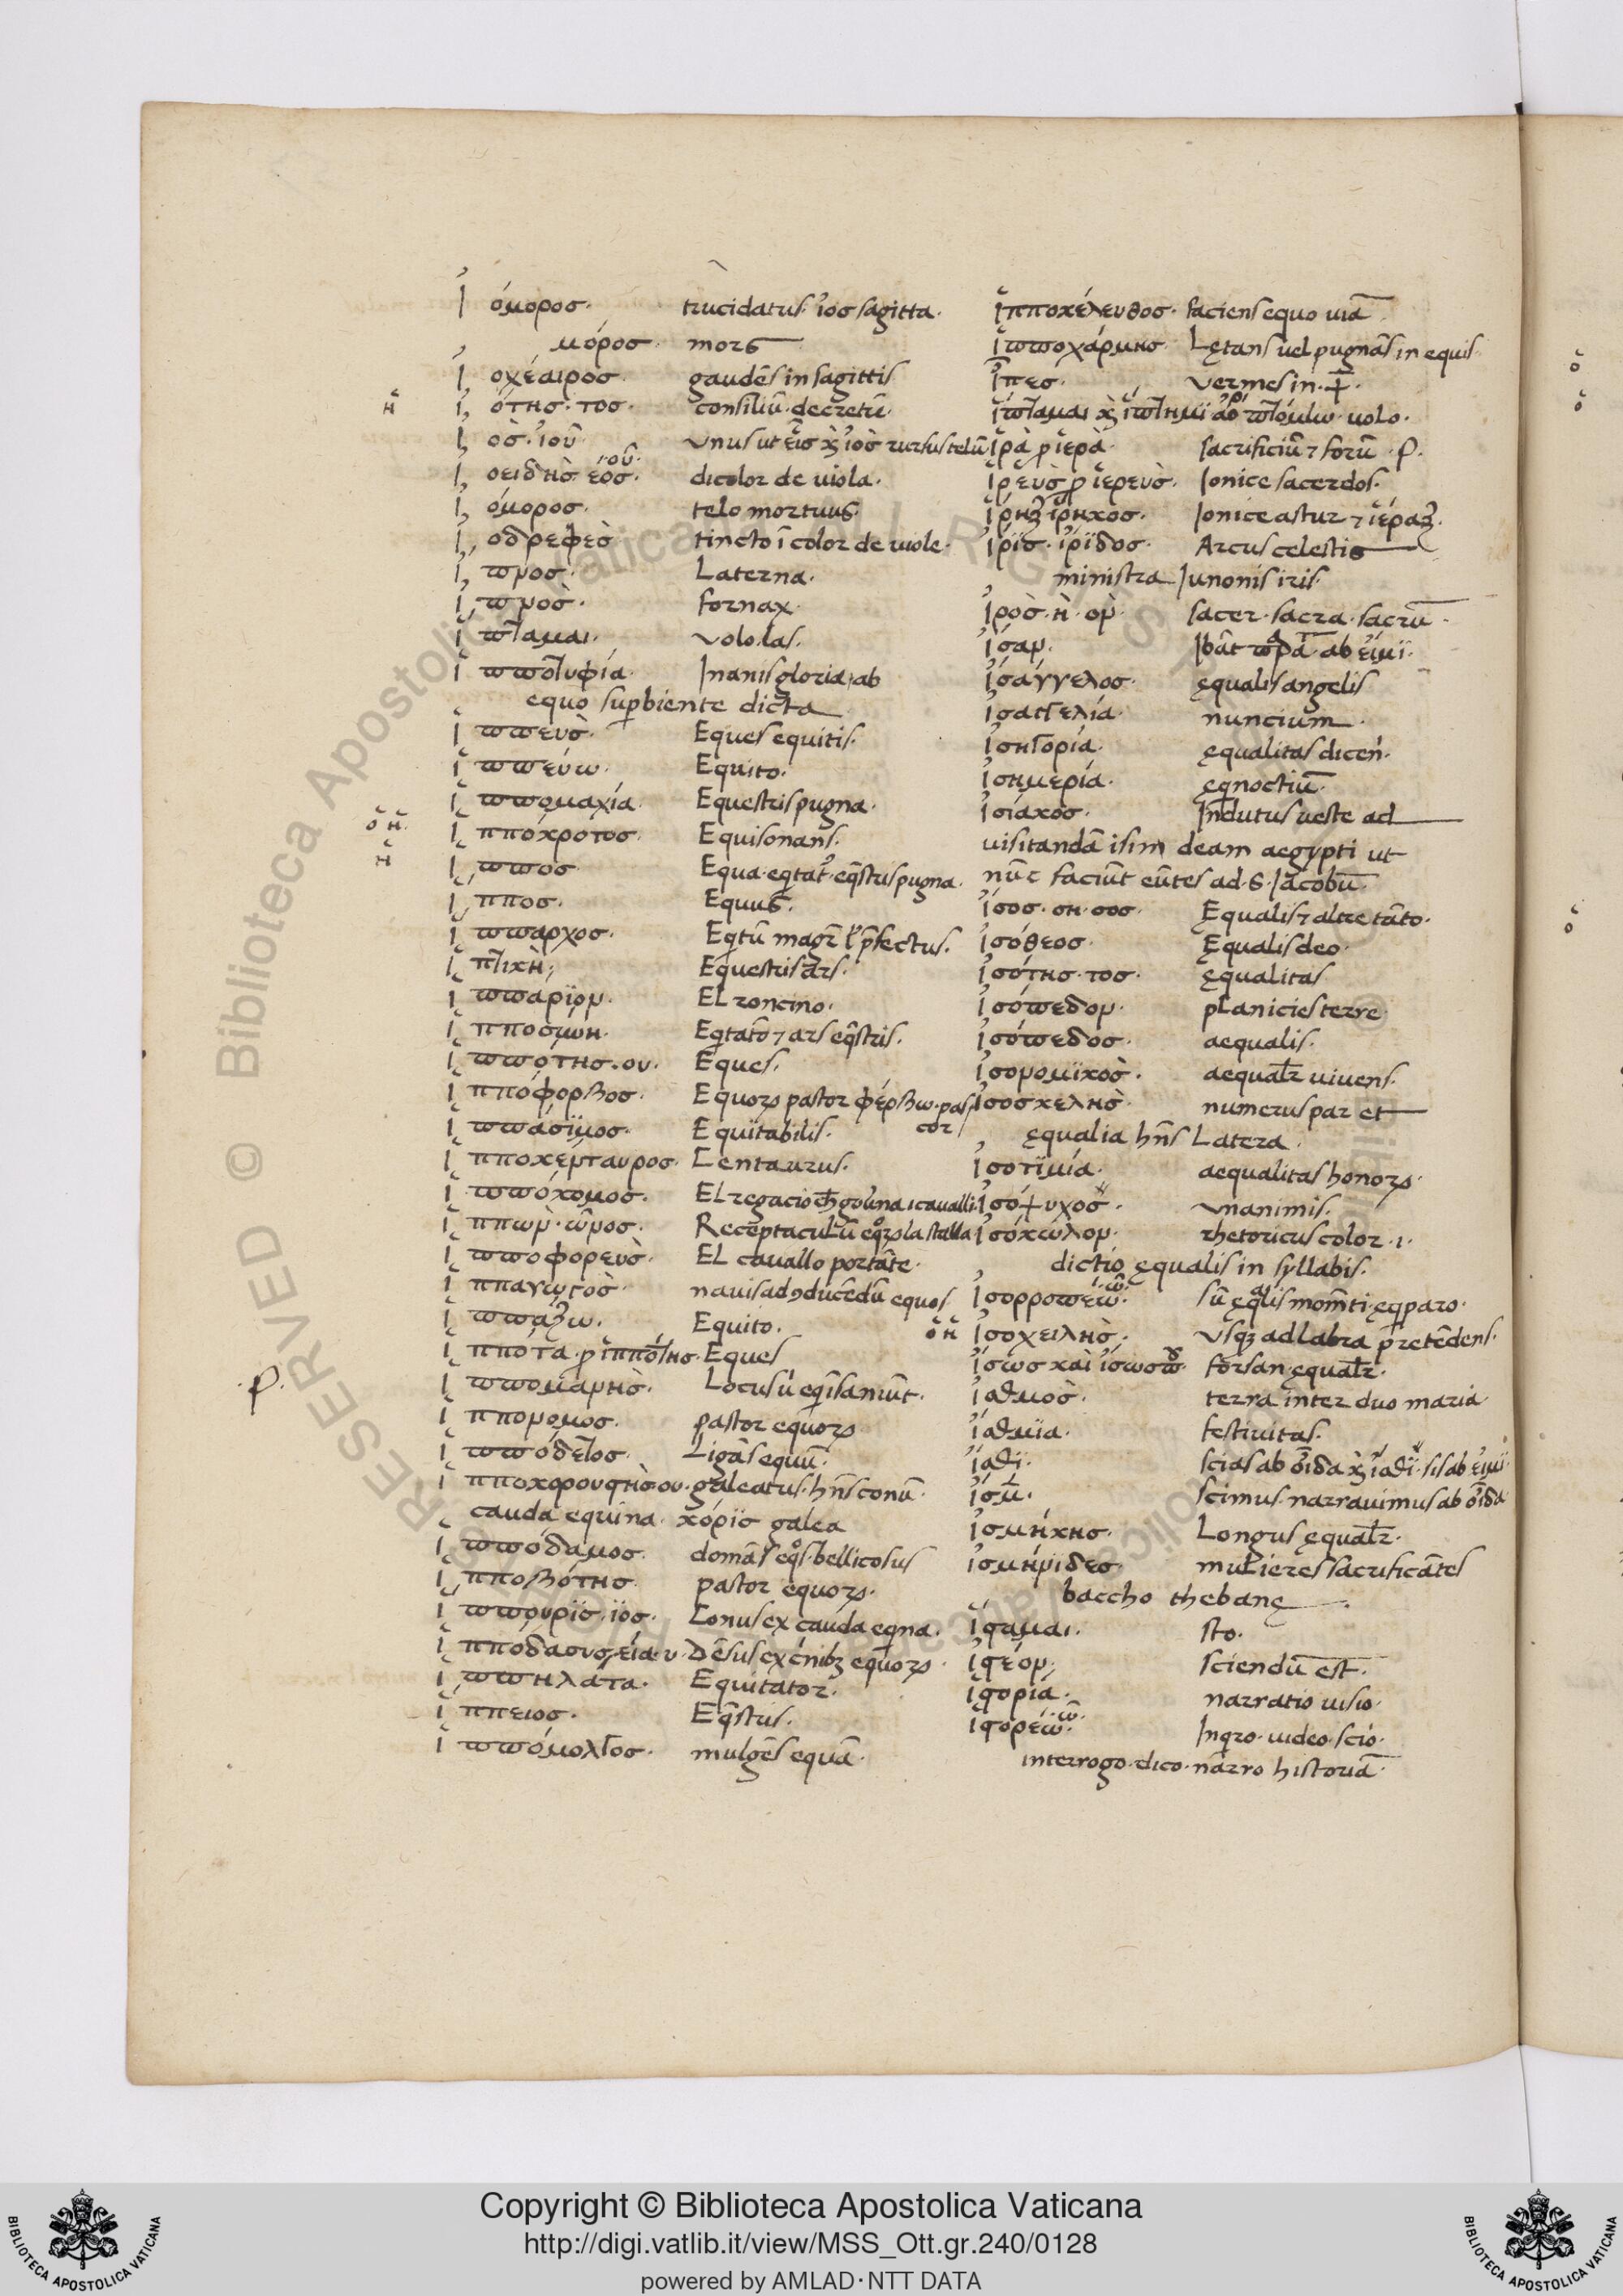 Ἰ όμορος· trucidatus· ἰος sagitta·
μόρος· mors
Ἰ οχέαιρος· gaudēs in sagittis
Ἰ ότης· τος· consiliū· decretū·
Ἰ ὸς· ἰοῦ· Vnus ut εἷς ἰὸς rursus telū
Ἰ οειδὴς· έος· οῦς· dicolor de viola·
Ἰ όμορος· telo mortuus·
Ἰ οδνεφὲς tincto ī color de viole·
Ἰ πνος· Laterna·
Ἰ πνὸς· fornax·
Ἰ πταμαι· Volo·las·
Ἱ πποτυφία· Inanis gloria, ab
equo supbiente dicta
Ἱ ππεὺς· Eques equitis·
Ἱ ππεύω· Equito·
Ἱ ππομαχία· Equestris pugna·
Ἱ ππόκροτος· Equisonans·
Ἱ ππος Equa· eqtat· eqstris pugna·
Ἱ ππος· Equus·
Ἱ ππαρχος· Eqtū magr l pfectus·
Ἱ ππικὴ· Equestris ars·
Ἱ ππαρϊον· EL roncino·
Ἱ πποσύνη· Eqtatō ⁊ ars eqstris·
Ἱ ππότης·ου· Eques·
Ἱ ππόφορβος· Equorꝝ pastor φέρβω·pas
cor
Ἱ ππάσϊμος· Equitabilis·
Ἱ πποκένταυρος· Centaurus·
Ἱ ππόκομος·
Ἱ ππων·ῶνος· Receptaculū eqrꝝ la stalla
Ἱ πποφορεὺς· EL cavallo portāte·
Ἱ ππαγωγὸς· navis ad ↄducēdū equos
Ἱ ππάζω· Equito·
Ἱ ππότα· ἱππότης· Eques
Ἱ ππομανὴς· Locus ū eq īsaniūt·
Ἱ ππονομος· pastor equorꝝ
Ἱ ππόδετος· Ligās equū·
Ἱ πποκορυστὴς·ου· galeatus· hn̄s conū·
cauda equina· κόρϊς galea
Ἱ ππόδαμος· domās eqs·bellicosus
Ἱ πποβότης· pastor equorꝝ·
Ἱ ππουρϊς·ϊος· Conus ex cauda eqna·
Ἱ πποδασυς,εία·υ· Dēsus ex cnibꝫ equorꝝ·
Ἱ ππηλάτα· Equitator·
Ἱ ππειος· Eqstris·
Ἱ ππόμολγος· mulgēs equā·
Ἱπποκέλευθος· faciens equo viā
Ἱπποχάρμης· Lętans vel pugnās in equis·
Ἶπες· Vermes in·
Ἵπταμαι ἵπτημϊ volo·
Ἱρὰ ἱερὰ· sacrificiū ⁊ forū·
Ἱρεὺς ἱερεὺς· Ionice sacerdos·
Ἵρηξ ἵρηκος· Ionice astur ⁊ ἱέραξ·
Ἶρϊς· ἴρϊδος· Arcus celestis
ministra Iunonis iris·
Ἱρὸς·ὴ·ὸν· sacer·sacra·sacrū
Ἴσαν· Ibāt ab εἶμϊ·
Ἰσάγγελος· ęqualis angelis
Ἰσαγγελία· nuncium·
Ἰσηγορία· ęqualitas dicen·
Ἰσημερία· ęqnoctiū·
Ἰσίακος· Indutus veste ad
visitandā isim deam aegypti ut
nūc faciūt eūtes ad·S·Iacobū·
Ἴσος·ση·σος· Equalis ⁊ altre tāto·
Ἰσόθεος· Equalis deo·
Ἰσότης·τος· ęqualitas
Ἰσόπεδον· planicies terre·
Ἰσόπεδος· aequalis·
Ἰσονομϊκὸς· aequalr vivens·
Ἰσοσκελὴς· numerus par et
ęqualia hn̄s Latera·
Ἰσοτϊμία· aequalitas honorꝝ·
Ἰσόψυχος· Vnanimis·
Ἰσόκωλον· rhetoricus color·ι·
dictio ęqualis in syllabis·
Ἰσορροπέω·ῶ· sū ęqlis momēti·ęqparo·
Ἰσοχειλὴς· Vsqꝫ ad labra pretēdens·
Ἴσως καὶ forsan·ęqualr·
Ἰσθμὸς· terra inter duo maria
Ἴσθμια· festivitas·
Ἴσθϊ· scias ab οἶδα ἴσθϊ·sis ab εἰμϊ·
Ἴσμ̄· scimus·narravimus ab οἶδα
Ἰσμήκης· Longus ęqualr·
Ἰσμήνϊδες· mulieres sacrificātes
baccho thebanę
Ἵσταμαι· sto·
Ἰστέον· sciendū est·
Ἱστορία· narratio visio·
Ἱστορέω·ῶ· Inqro·video·scio·
interrogo·dico·narro historiā·
Copyright © Biblioteca Apostolica Vaticana
http://digi.vatlib.it/view/MSS_Ott.gr.240/0128
powered by AMLAD·NTT DATA